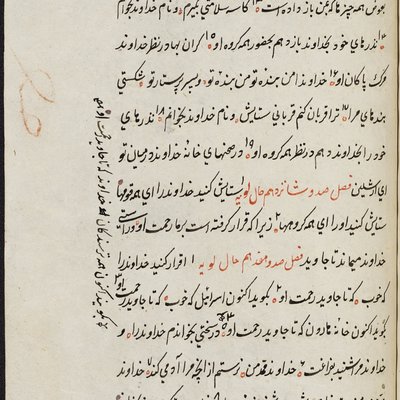 عوض همه چیزها که بمن باز داده است ۱۳ کاسه سلامتی بگیرم و نام خداوند بخوانم
۱۴ نذرهای خود بخداوند باز دهم بحضور همه کروه او ۱۵ کران بها در نظر خداوند
مرک پاکان او ۱۶ خداوندا من بنده تو من بنده تو و پسر پرستار تو شکستی
بندهای مرا ۱۷ ترا قربان کنم قربانی ستایش و نام خداوند بخوانم ۱۸ نذرهای
خود را بخداوند دهم در نظر همه کروه او ۱۹ در صحنهای خانه خداوند در میان تو
ای اورشلیم فصل صد و شانزدهم حال لویه ۱ ستایش کنید خداوند را ای همه قومها
ستایش کنید او را ای همه کروهها ۲ زیرا که قرار کرفته است بر ما رحمت او و راستی
خداوند میماند تا جاوید فصل صد و هفدهم حال لویه ۱ اقرار کنید خداوند را
که خوب که تا جاوید رحمت او ۲ بکوید اکنون اسرائیل که خوب که تا جاوید رحمت او ۳
بکوید اکنون خانه هارون که تا جاوید رحمت او ۵ در سختی بخواندم خداوند را و
خداوند مرا شنید بفراغت ۶ خداوند قد من نترسم از انچه مرا آدمی کند ۷ خداوند
بکوید اکنون همه ترسندکان خداوند که تا جاوید رحمت او